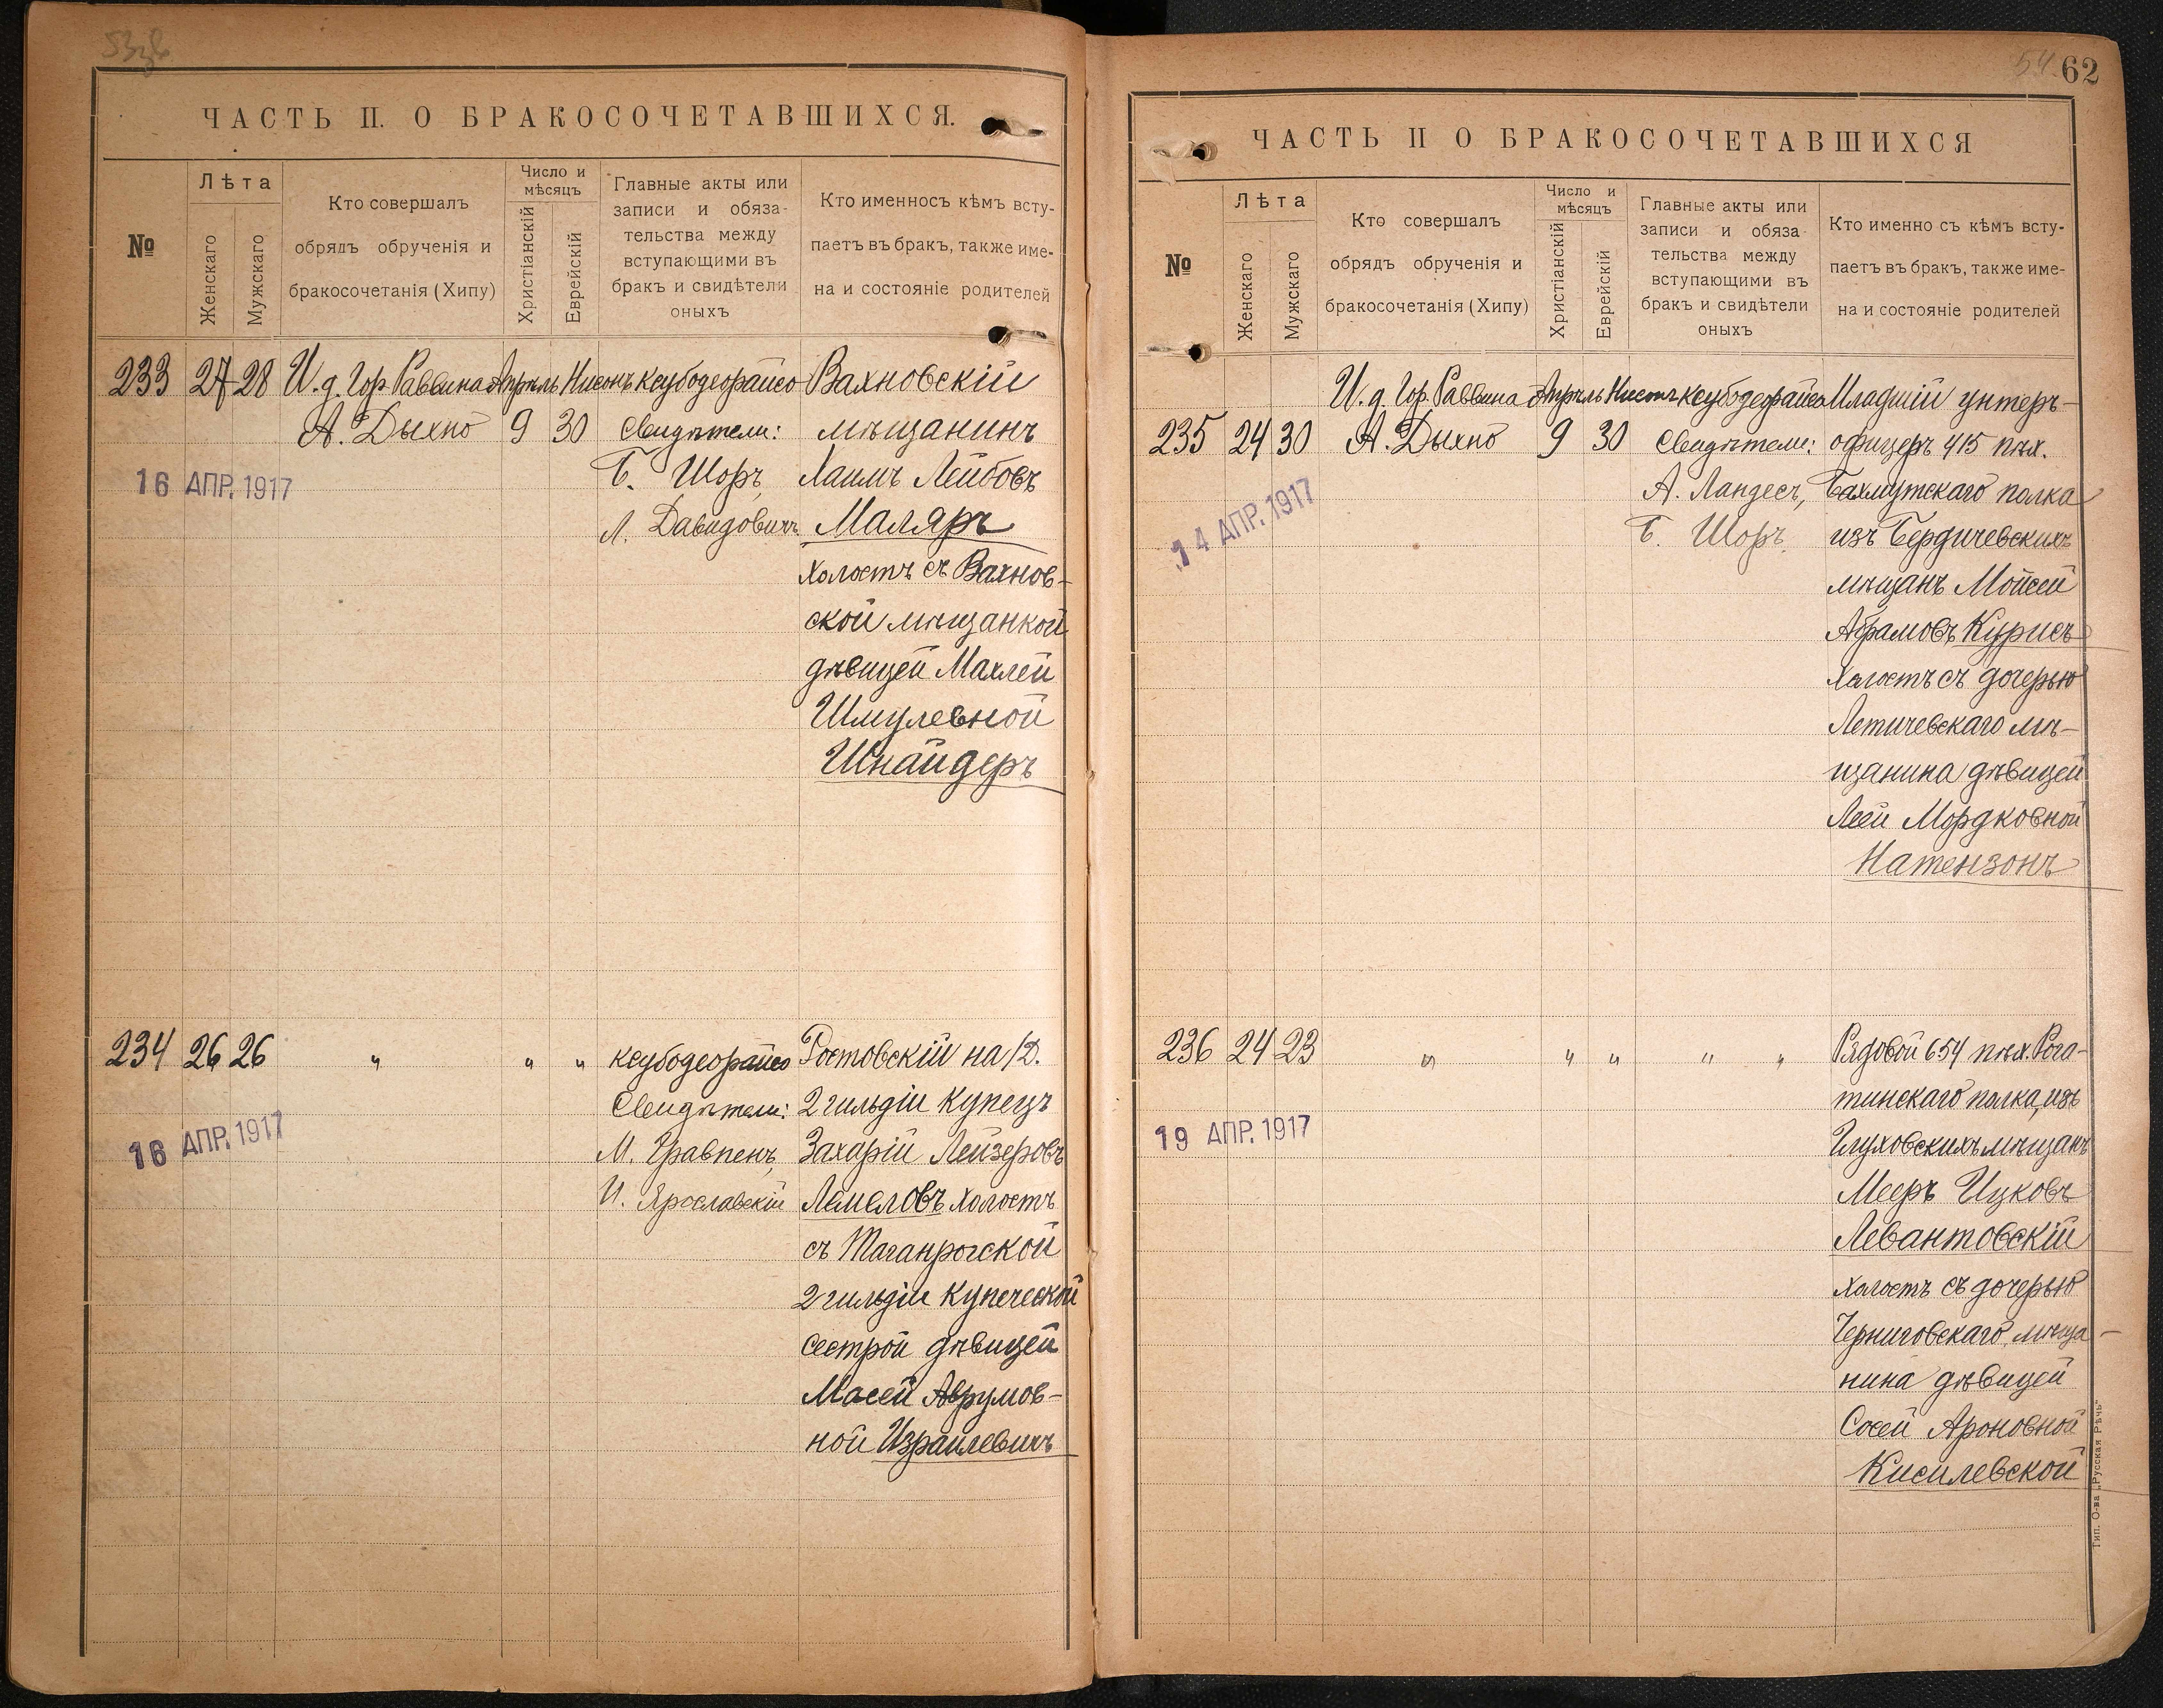 53 об
ЧАСТЬ II. О БРАКОСОЧЕТАВШИХСЯ.
№
Лѣта
Женскаго
Мужскаго
Кто совершалъ
обрядъ обрученія и
бракосочетанія (Хипу)
Число и
мѣсяцъ
Христіанскій
Еврейскій
Главные акты или
записи и обяза-
тельства между
вступающими въ
бракъ и свидѣтели
оныхъ
Кто именносъ кѣмъ всту-
паетъ въ бракъ, также име-
на и состояніе родителей
233 27 28 И. д. Гор. Раввина Апрѣль Нисонъ ксубодеорайсо Вахновскій
А. Дыхно 9 30 Свидѣтели: мѣщанинъ
16 АПР. 1917 Б. Шоръ, Хаимъ Лейбовъ
Л. Давидовичъ Маляръ
холостъ съ Вахнов-
ской мѣщанкой
дѣвицей Махлей
Шмулевной
Шнайдеръ
234 26 26 „ „ „ ксубодеорайсо Ростовскій на/Д.
Свидѣтели: 2 гильдіи купецъ
16 АПР. 1917 М. Гравпенъ, Захарій Лейзеровъ
И. Ярославскій Лемеловъ холостъ
съ Таганрогской
2 гильдіи купеческой
сестрой дѣвицей
Масей Аврумов-
ной Израилевичъ
54 62
ЧАСТЬ II О БРАКОСОЧЕТАВШИХСЯ
№
Лѣта
Женскаго
Мужскаго
Кто совершалъ
обрядъ обрученія и
бракосочетанія (Хипу)
Число и
мѣсяцъ
Христіанскій
Еврейскій
Главные акты или
записи и обяза-
тельства между
вступающими въ
бракъ и свидѣтели
оныхъ
Кто именно съ кѣмъ всту-
паетъ въ бракъ, также име-
на и состояніе родителей
И. д. Гор. Раввина Апрѣль Нисонъ ксубодеорайсо Младшій унтеръ-
235 24 30 А. Дыхно 9 30 Свидѣтели: офицеръ 415 пѣх.
14 АПР. 1917 А. Ландесъ, Бахмутскаго полка
Б. Шоръ. изъ Бердичевскихъ
мѣщанъ Мойсей
Абрамовъ Курисъ
холостъ съ дочерью
Летичевскаго мѣ-
щанина дѣвицей
Леей Мордковной
Натензонъ
236 24 23 „ „ „ „ „ Рядовой 654 пѣх. Рога-
тинскаго полка, изъ
19 АПР. 1917 Глуховскихъ мѣщанъ
Мееръ Ицковъ
Левантовскій
холостъ съ дочерью
Черниговскаго мѣща-
нина дѣвицей
Сосей Ароновной
Кисилевской
Тип. О-ва „Русская Рѣчь“